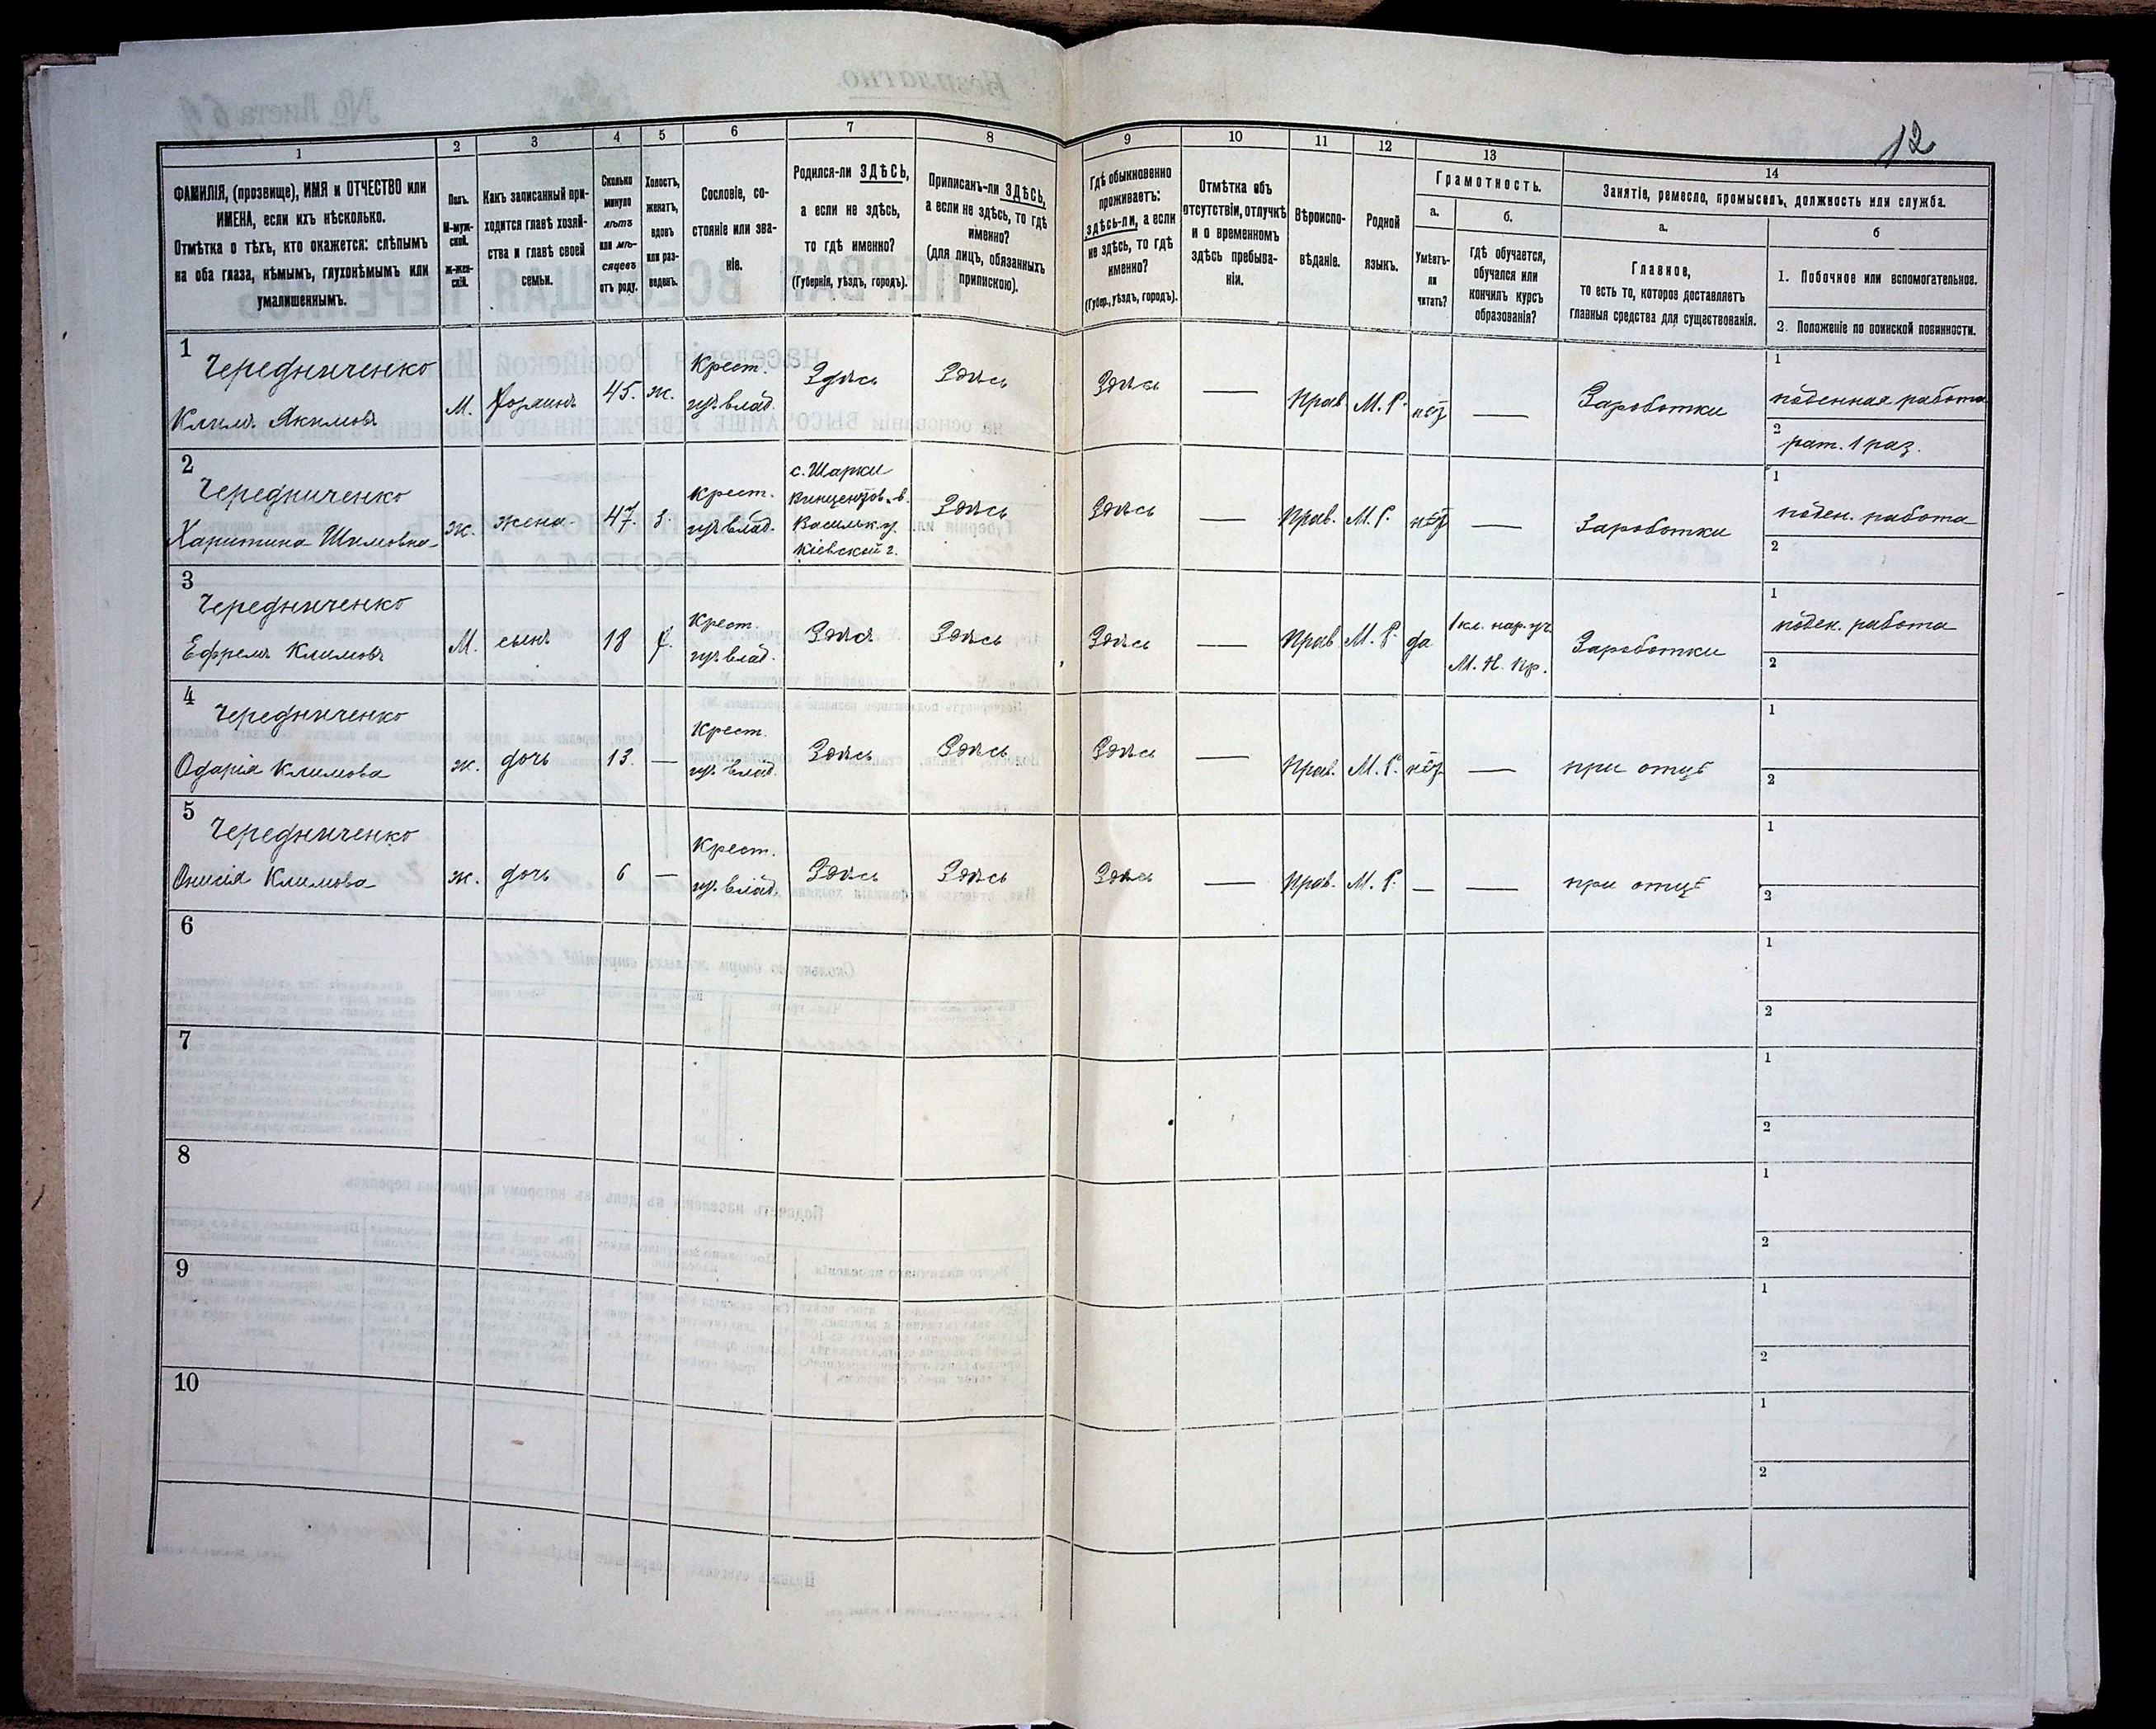 12
1 2 3 4 5 6 7 8 9 10 11 12 13 14
ФАМИЛІЯ, (прозвище), ИМЯ и ОТЧЕСТВО или
ИМЕНА, если ихъ нѣсколько.
Отмѣтка о тѣхъ, кто окажется: слѣпымъ
на оба глаза, нѣмымъ, глухонѣмымъ или
умалишеннымъ.
Полъ.
М-муж-
ской.
Ж-жен-
скій.
Какъ записанный при-
ходится главѣ хозяй-
ства и главѣ своей
семьи.
Сколько
минуло
лѣтъ
или мѣ-
сяцевъ
отъ роду.
Холостъ,
женатъ,
вдовъ
или раз-
веденъ.
Сословіе, со-
стояніе или зва-
ніе.
Родился-ли ЗДѢСЬ,
а если не здѣсь,
то гдѣ именно?
(Губернія, уѣздъ, городъ).
Приписанъ-ли ЗДѢСЬ,
а если не здѣсь, то гдѣ
именно?
(для лицъ, обязанныхъ
припискою).
Гдѣ обыкновенно
проживаетъ:
здѣсь-ли, а если
не здѣсь, то гдѣ
именно?
(Губер., уѣздъ, городъ).
Отмѣтка объ
отсутствіи, отлучкѣ
и о временномъ
здѣсь пребыва-
ніи.
Вѣроиспо-
вѣданіе.
Родной
языкъ.
Грамотность.
а.
Умѣетъ-
ли
читать?
б.
гдѣ обучается,
обучался или
кончилъ курсъ
образованія?
Занятіе, ремесло, промыселъ, должность или служба.
а.
Главное,
то есть то, которое доставляетъ
главныя средства для существованія.
б
1. Побочное или вспомогательное.
2. Положеніе по воинской повинности.
1
Чередниченко
Климъ Якимовъ
М.
хозяинъ
45.
ж.
Крест.
изъ влад.
Здѣсь
Здѣсь
Здѣсь
—
Прав
М. Р.
нѣтъ
—
Зароботки
1
поденная работа
2
рат. 1 раз.
2
Чередниченко
Харитина
ж.
жена
47.
з.
Крест.
изъ влад.
с. Шарки
Васильк. у.
Кіевской г.
Здѣсь
Здѣсь
—
Прав.
М. Р.
нѣтъ
—
Зароботки
1
поден. работа
2
3
Чередниченко
Ефремъ Климовъ
М.
сынъ
18
х.
Крест.
изъ влад.
Здѣсь
Здѣсь
Здѣсь
—
Прав
М. Р.
да
1 кл. нар. уч.
М. Н. Пр.
Зароботки
1
поден. работа
2
4
Чередниченко
Одарія Климова
ж.
дочь
13.
—
Крест.
изъ влад.
Здѣсь
Здѣсь
Здѣсь
—
Прав.
М. Р.
нѣтъ
—
при отцѣ
1
2
5
Чередниченко
Онисія Климова
ж.
дочь
6
—
Крест.
изъ влад.
Здѣсь
Здѣсь
Здѣсь
—
Прав.
М. Р.
—
—
при отцѣ
1
2
6
1
2
7
1
2
8
1
2
9
1
2
10
1
2